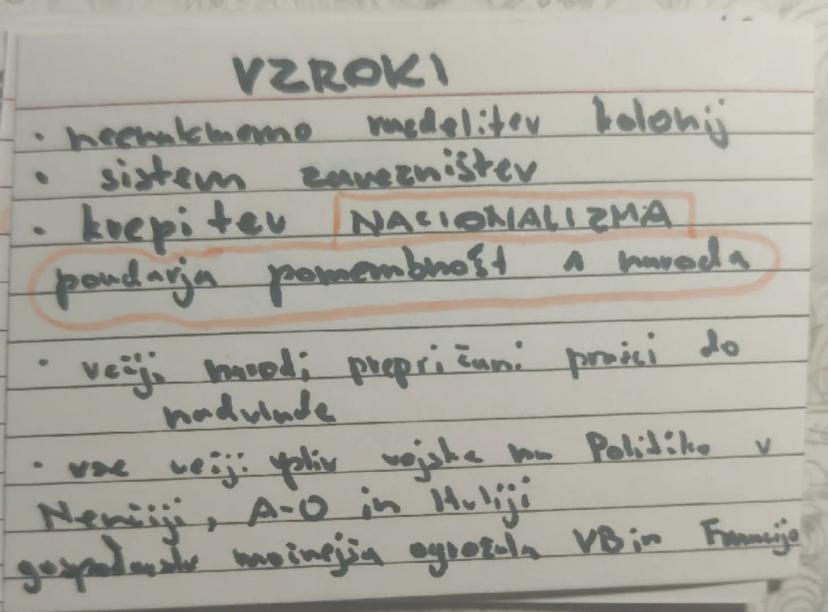 VZROKI
• neenakomerno razdelitev kolonij
• sistem zavezništev
• krepitev NACIONALIZMA
poudarja pomembnošt 1 naroda
• večji narodi prepričani pravici do
nadvlade
• vse večji vpliv vojske na Politiko v
Nemčiji, A-O in Italiji
gospodarsko močnejša ogrožala VB in Francijo